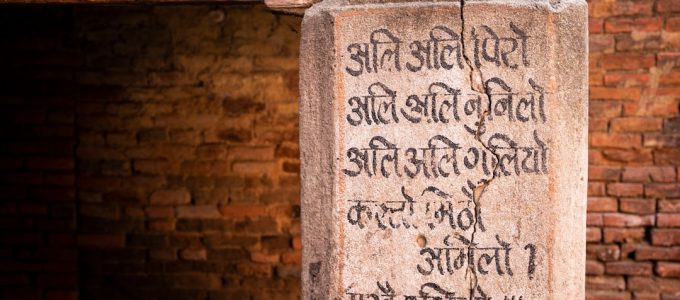 अलि अलि पिरो
अलि अलि नुनिलो
अलि अलि गुलियो
कस्तो मिठो
अमिलो ।